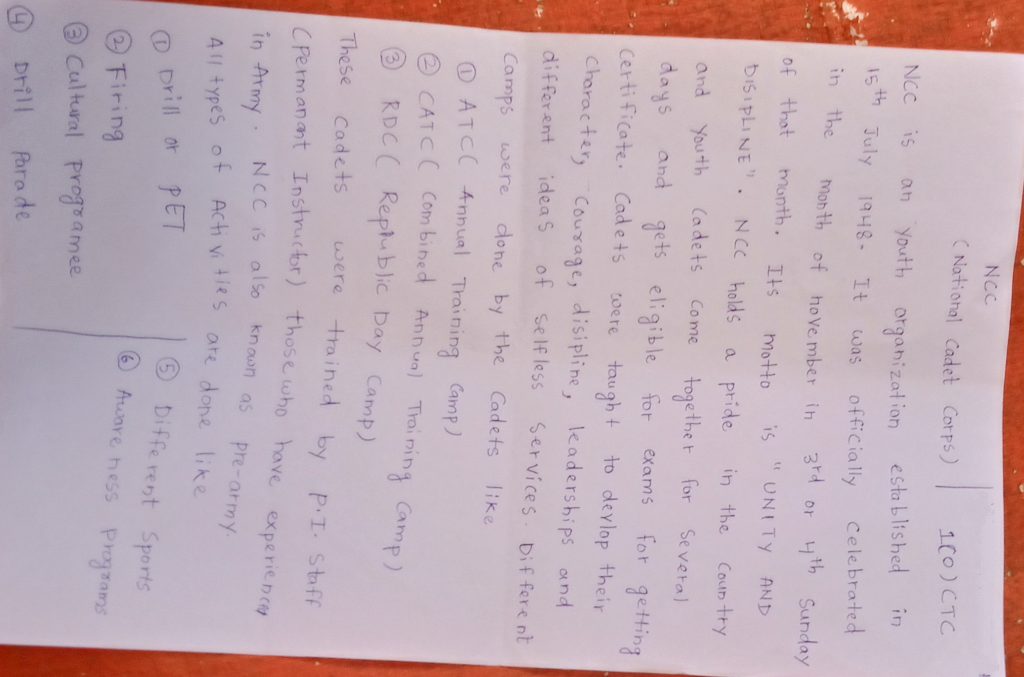 NCC
(National Cadet Corps) 1(O)CTC
NCC is an youth organization established in
15th July 1948. It was officially celebrated
in the month of november in 3rd or 4th Sunday
of that month. Its motto is "UNITY AND
DISIPLINE". NCC holds a pride in the country
and youth Cadets come together for several
days and gets eligible for exams for getting
Certificate. Cadets were taught to devlop their
character, Courage, disipline, leaderships and
different ideas of selfless services. Different
Camps were done by the Cadets like
① ATC( Annual Training Camp)
② CATC( Combined Annual Training Camp)
③ RDC( Replublic Day Camp)
These Cadets were trained by P.I. Staff
(Permanant Instructor) those who have experience
in Army. NCC is also known as pre-army.
All types of Activities are done like
① Drill or PET
② Firing
③ Cultural programee
④ Drill Parade
⑤ Different Sports
⑥ Awareness Programs